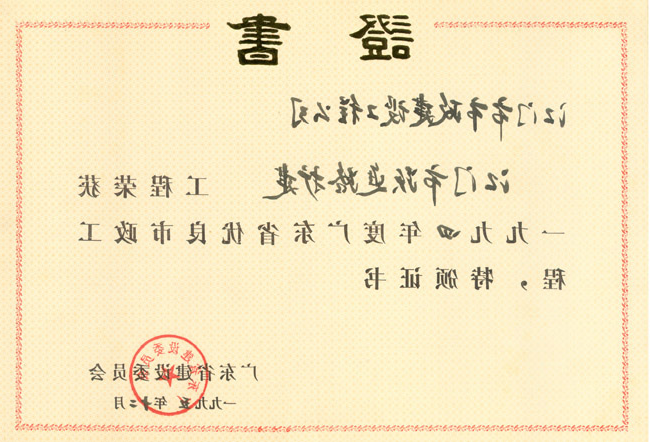 證書
江门市市政建设工程公司
江门市跃进路扩建 工程荣获
一九九四年度广东省优良市政工
程，特颁证书
广东省建设委员会
一九九五年十二月